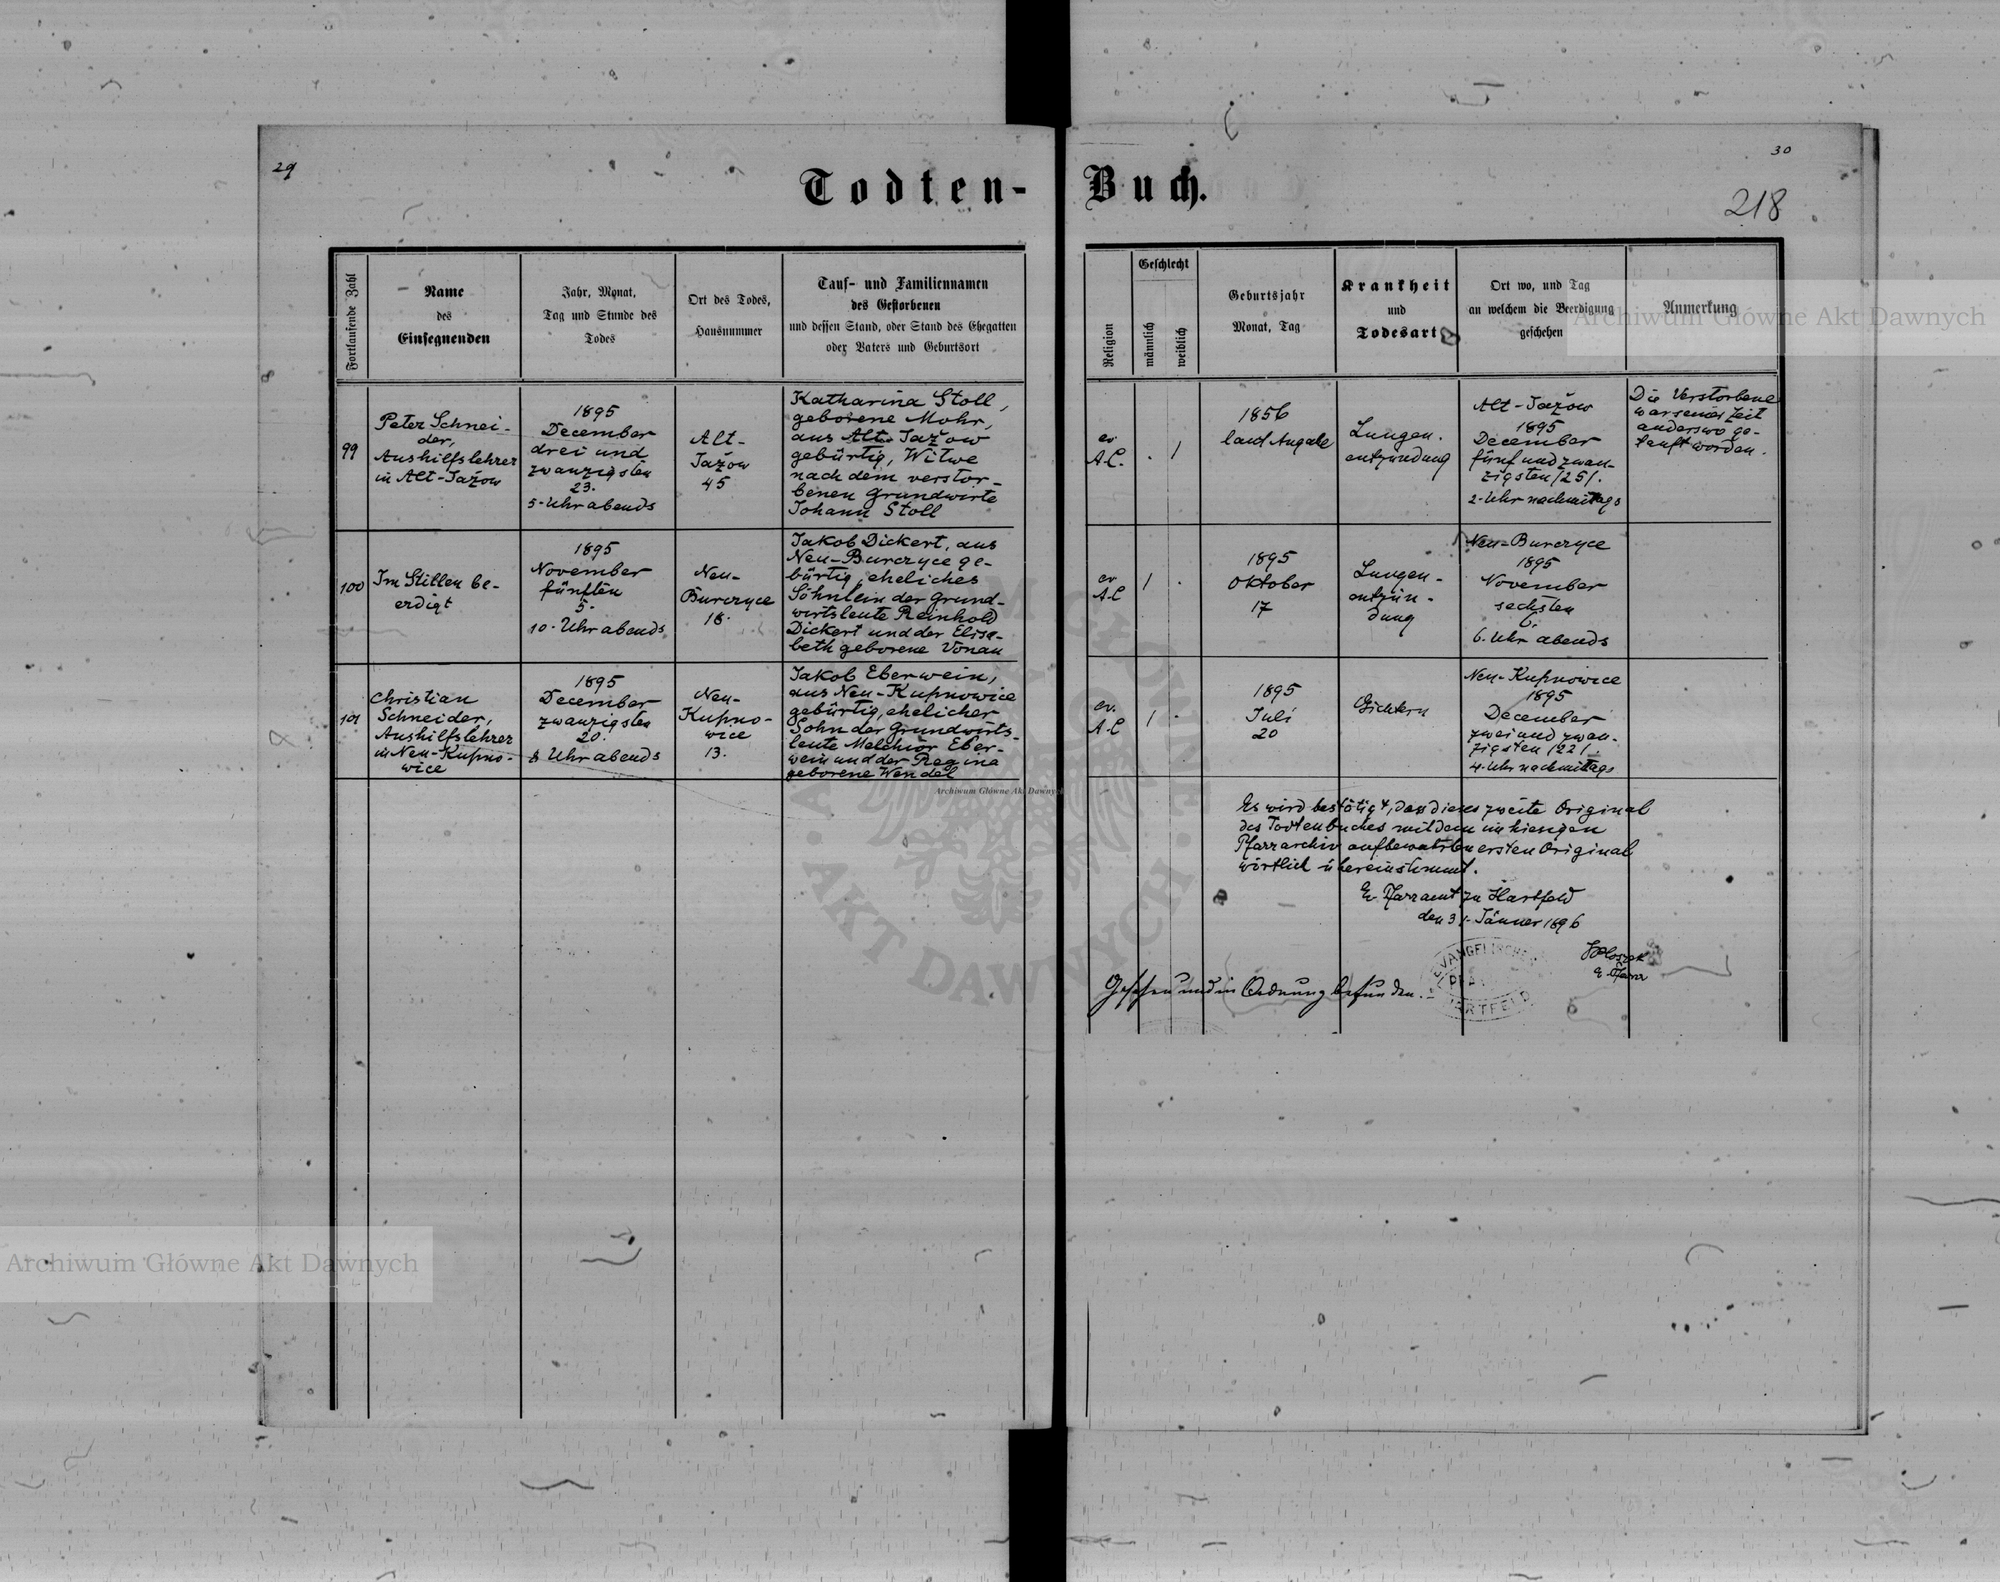 29
30
Todten-Buch.
218
Fortlaufende Zahl
Name
des
Einsegnenden
Jahr, Monat,
Tag und Stunde des
Todes
Ort des Todes,
Hausnummer
Tauf- und Familiennamen
des Gestorbenen
und dessen Stand, oder Stand des Ehegatten
oder Vaters und Geburtsort
Religion
Geschlecht
männlich
weiblich
Geburtsjahr
Monat, Tag
Krankheit
und
Todesart
Ort wo, und Tag
an welchem die Beerdigung
geschehen
Anmerkung
99
Peter Schnei-
der,
Aushilfslehrer
in Alt-Jažow
1895
December
drei und
zwanzigsten
23.
5-Uhr abends
Alt-
Jažow
45
Katharina Stoll,
geborene Mohr,
aus Alt-Jažow
gebürtig, Witwe
nach dem verstor-
benen Grundwirte
Johann Stoll
ev
A.C.
. 1
1856
laut Angabe
Lungen-
entzündung
Alt-Jažow
1895
December
fünf und zwan-
zigsten /25/.
2-Uhr nachmittags
Die Verstorbene
war seiner Zeit
anderswo ge-
tauft worden.
100
Im Stillen be-
erdigt
1895
November
fünften
5.
10-Uhr abends
Neu-
Burczyce
18.
Jakob Dickert, aus
Neu-Burczyce ge-
bürtig, eheliches
Söhnlein der Grund-
wirtsleute Reinhold
Dickert und der Elisa-
beth geborene Vonau
ev
A.C
1 .
1895
Oktober
17
Lungen-
entzün-
dung
Neu-Burczyce
1895
November
sechsten
6.
6. Uhr abends
101
Christian
Schneider,
Aushilfslehrer
in Neu-Kupno-
wice
1895
December
zwanzigsten
20.
8 Uhr abends
Neu-
Kupno-
wice
13.
Jakob Eberwein,
aus Neu-Kupnowice
gebürtig, ehelicher
Sohn der Grundwirts-
leute Melchior Eber-
wein und der Regina
geborene Wendel
ev.
A.C
1 .
1895
Juli
20
Gichtern
Neu-Kupnowice
1895
December
zwei und zwan-
zigsten /22/.
4-Uhr nachmittags
Es wird bestätigt, dass dieses zweite Original
des Todtenbuches mit dem im hiesigen
Pfarrarchiv aufbewahrten ersten Original
wörtlich übereinstimmt.
Ev. Pfarramt zu Hartfeld
den 31. Jänner 1896
ev. Pfarr
EVANGELISCHES
HARTFELD
Gesehen und in Ordnung befunden.
Archiwum Główne Akt Dawnych
Archiwum Główne Akt Dawnych
Archiwum Główne Akt Dawnych